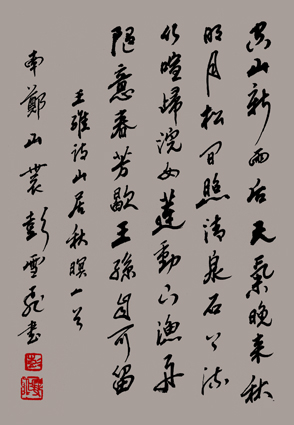 空山新雨后天气晚来秋
明月松间照清泉石上流
竹喧归浣女莲动下渔舟
随意春芳歇王孙自可留
王维诗山居秋暝一首
南郑山农彭雪飞书